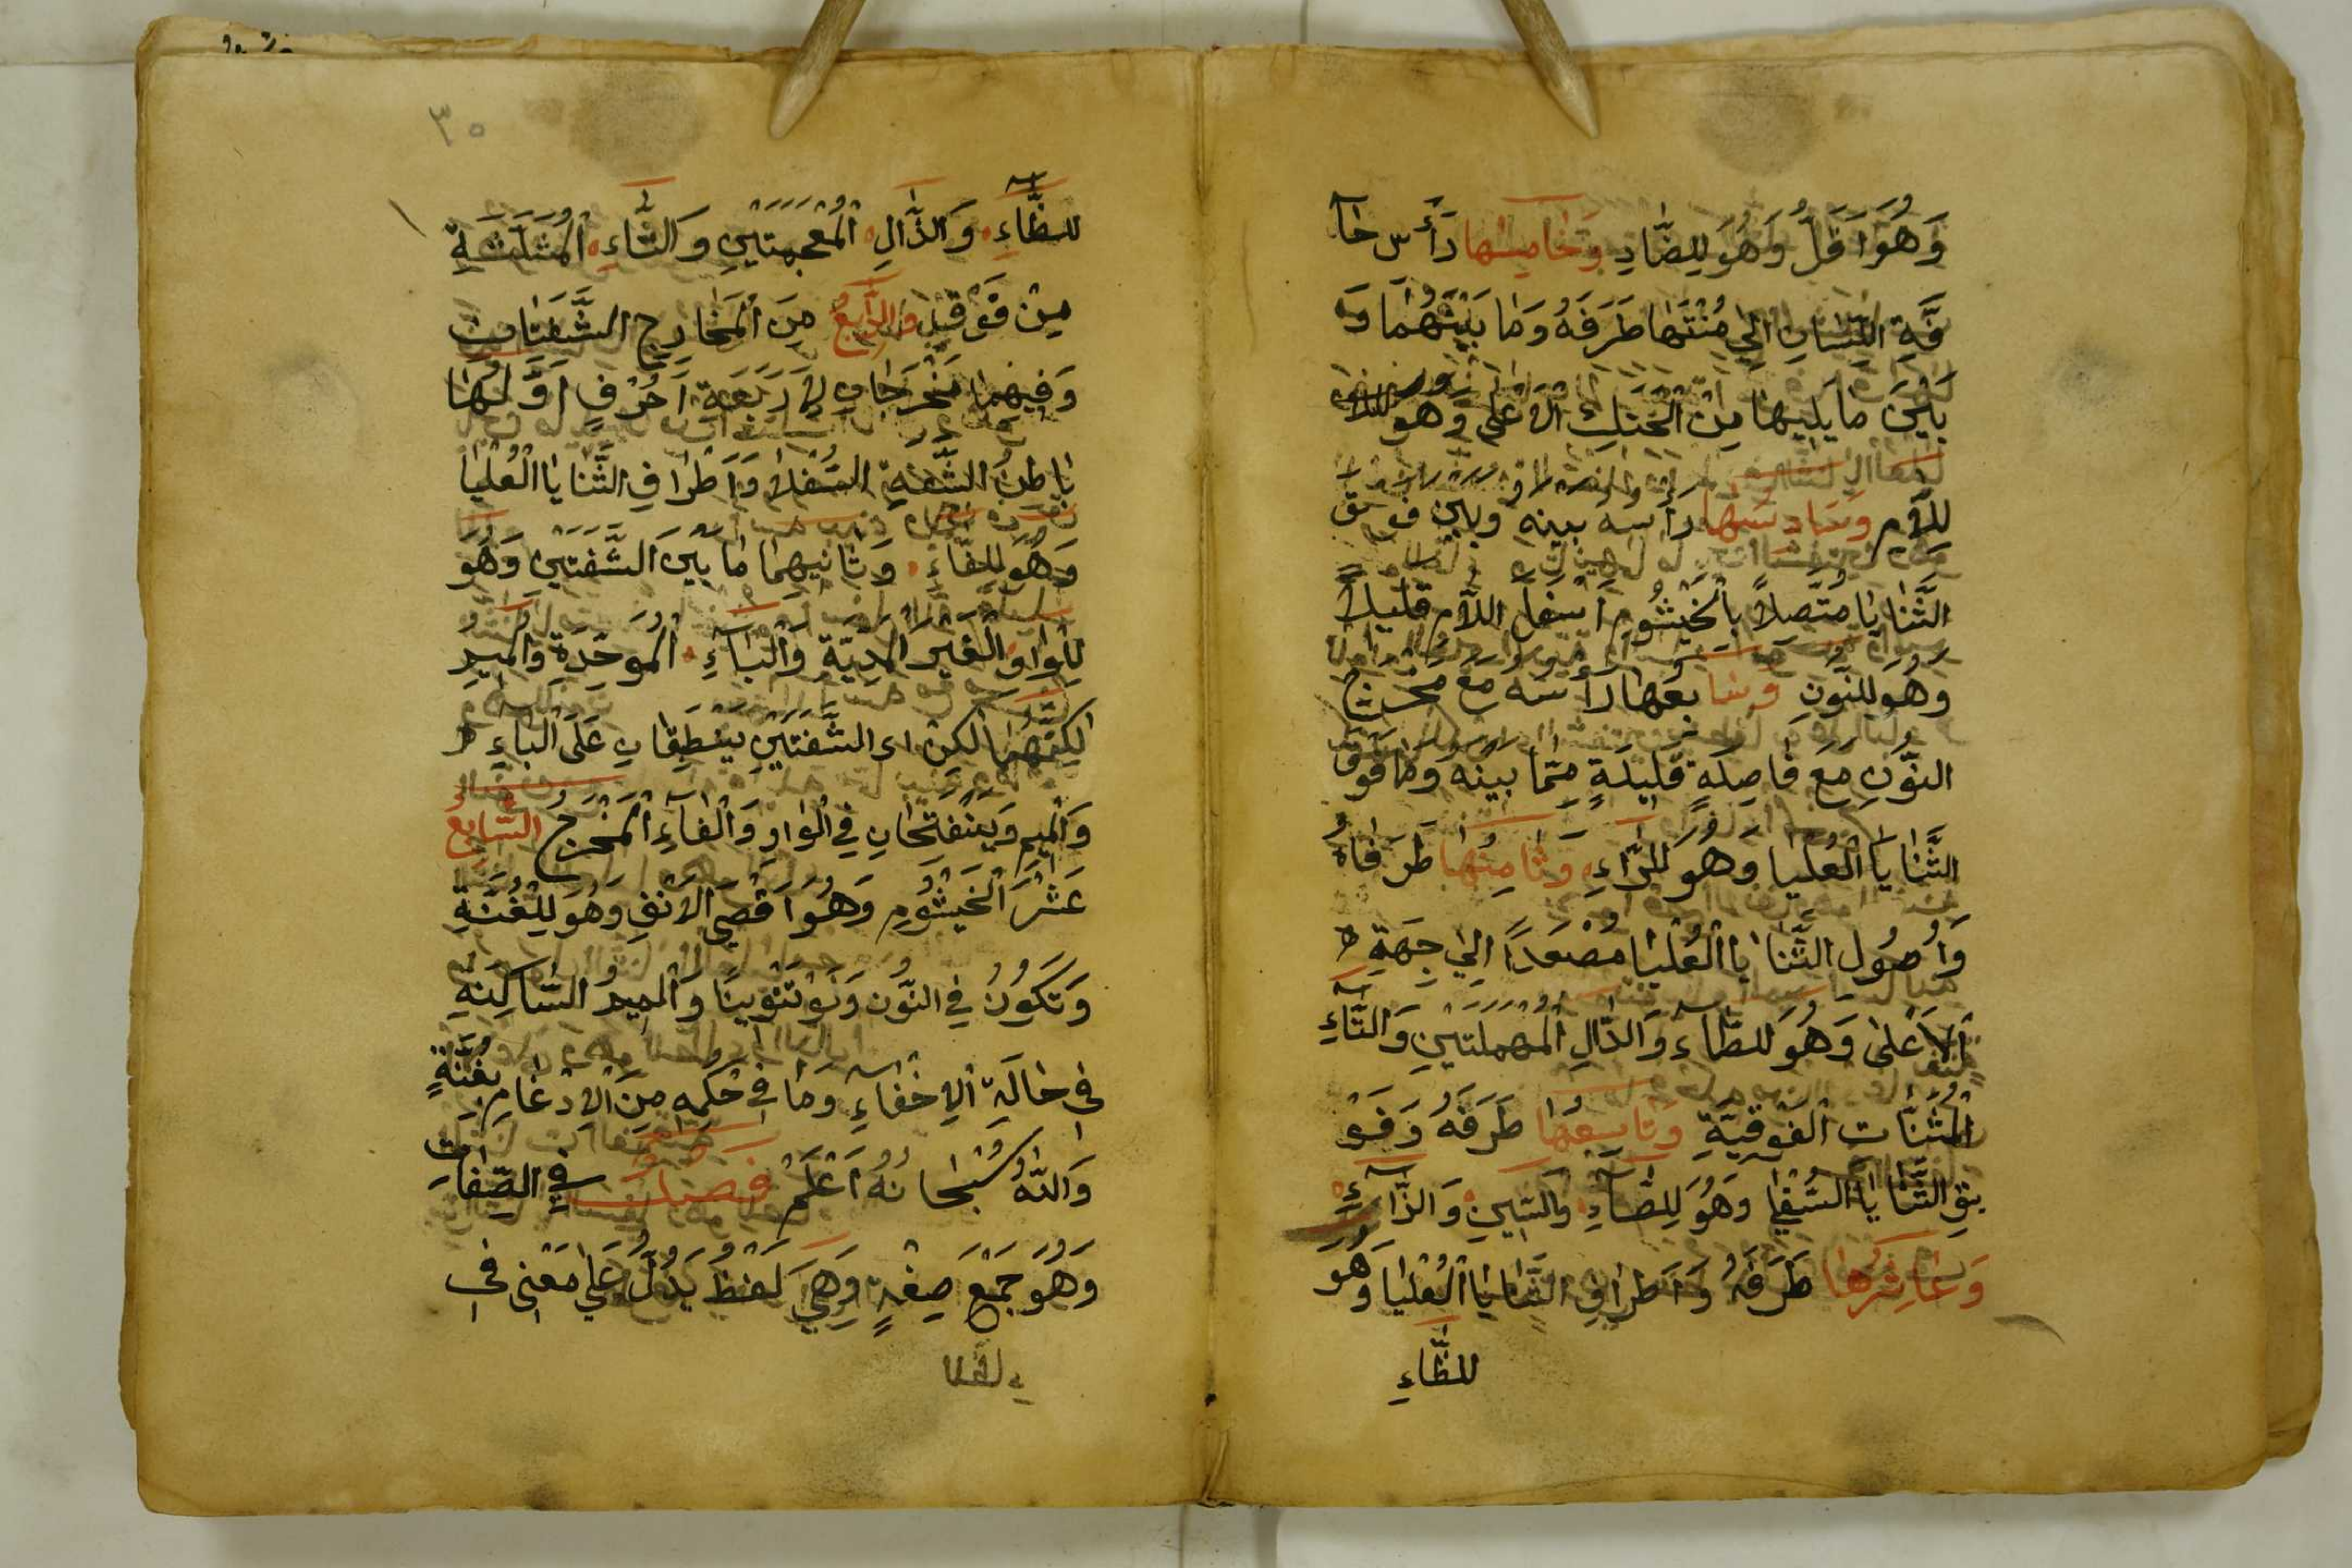 وَهُوَ اَقَلُّ وَهُوَ لِلضَّادِ وَخَامِسُهَا رَأْسُ حَآ
فَّةِ اللِّسَانِ اِلَى مُنْتَهَا طَرَفَهُ وَمَا بَيْنَهُمَا وَ
بَيْنَ مَا يَلِيهَا مِنَ الْحَنَكِ الْاَعْلَى وَهُوَ
لِلاَّمِ وَسَادِسُهَا رَأْسُهُ بَيْنَهُ وَبَيْنَ فَوْقَ
الثَّنَايَا مُتَّصِلاً بِالْخَيْشُومِ اَسْفَلَ اللاَّمِ قَلِيلاً
وَهُوَ لِلنُّونِ وَسَابِعُهَا رَأْسُهُ مَعَ مَخْرَجِ
النُّونِ مَعَ فَاصِلَةٍ قَلِيلَةٍ مِمَّا بَيْنَهُ وَمَا فَوْقَ
الثَّنَايَا الْعُلْيَا وَهُوَ لِلرَّاءِ وَثَامِنُهَا طَرَفَاهُ
وَاُصُولِ الثَّنَايَا الْعُلْيَا مُصْعَدًا اِلَى جِهَةِ
اَلْاَعْلَى وَهُوَ لِلطَّاءِ وَالدَّالِ الْمُهْمَلَتَيْنِ وَالتَّآءِ
الْمُثَنَّاتِ الْفَوْقِيَّةِ وَتَاسِعُهَا طَرَفَهُ وَفَوْ
يْقِ الثَّنَايَا السُّفْلَى وَهُوَ لِلصَّآدِ وَالسِّينِ وَالزَّآءِ
وَعَاشِرُهَا طَرَفَهُ وَاَطْرَافِ الثَّنَايَا الْعُلْيَا وَهُوَ
لِلظَّاءِ
٣٥
لِلظَّآءِ وَالذَّالِ الْمُعْجَمَتَيْنِ وَالثَّاءِ الْمُثَلَّثَةِ
مِنْ فَوْقِهِ وَالرَّابِعُ مِنَ الْمَخَارِجِ الشَّفَتَانِ
وَفِيهِمَا مَخْرَجَانِ لِاَرْبَعَةِ اَحْرُفٍ اَوَّلُهَا
بَاطِنُ الشَّفَةِ السُّفْلَا وَاَطْرَافِ الثَّنَايَا الْعُلْيَا
وَهُوَ لِلفَّاءِ وَثَانِيهِمَا مَا بَيْنَ الشَّفَتَيْنِ وَهُوَ
لِلْوَاوِ الْغَيْرِ الْمَدِيَّةِ وَالْبَآءِ الْمُوَحَّدَةِ وَالْمِيمِ
لَكِنَّهُمَا لَكِنْ اى الشَّفَتَيْنِ يَنْطَبِقَانِ عَلَى الْبَاءِ
وَالْمِيمِ وَيَنْفَتِحَانِ فِي الْوَاوِ وَالْفَآءِ الْمَخْرَجُ السَّابِعُ
عَشَرَ الْخَيْشُومِ وَهُوَ اَقْصَى الْاَنْفِ وَهُوَ لِلْغُنَّةِ
وَتَكُونُ فِي النُّونِ وَلَوْ تَنْوِينًا وَالْمِيمُ السَّاكِنَةِ
فِى حَالَةِ الْاِخْفَآءِ وَمَا فِى حُكْمِهِ مِنَ الْاِدْغَامِ بِغُنَّةٍ
وَاللهُ سُبْحَانَهُ اَعْلَمُ فَصْلٌ فِي الصِّفَاتِ
وَهُوَ جَمْعُ صِفَةٍ وَهِيَ لَفْظٌ يَدُلُّ عَلَى مَعْنِى فِى